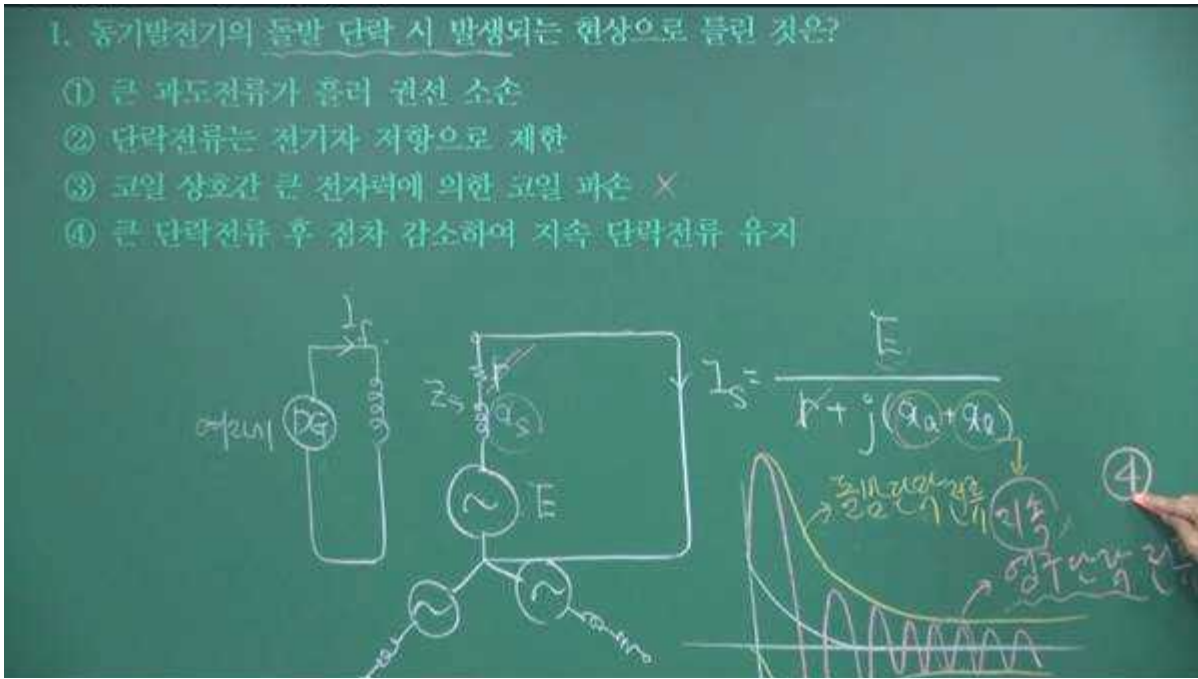 1. 동기발전기의 돌발 단락 시 발생되는 현상으로 틀린 것은?
① 큰 과도전류가 흘러 권선 소손
② 단락전류는 전기자 저항으로 제한
③ 코일 상호간 큰 전자력에 의한 코일 파손 ×
④ 큰 단락전류 후 점차 감소하여 지속 단락전류 유지
I_f
DG
Z_s
r
x_s
E
I_s = E / (r + j(x_a + x_l))
돌발단락전류
지속
영구단락전
④